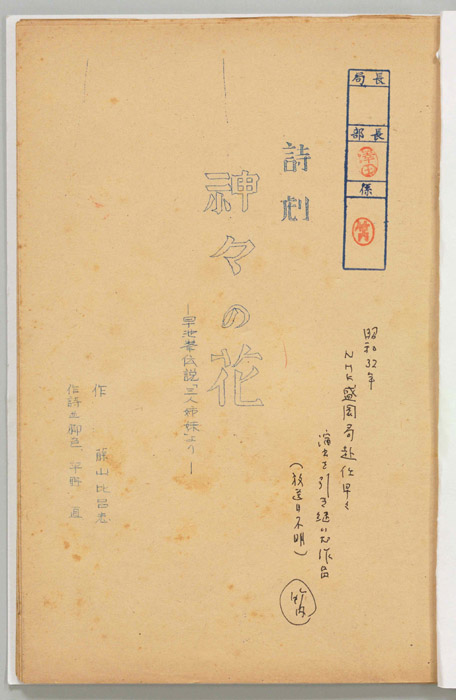 局長
部長
澤田
係
竹内
詩劇
神々の花
―早池峯伝説「三人姉妹」より―
作
作詩並脚色
昭和32年
NHK盛岡局赴任早々
演出を引き継いだ作品
(放送日不明)
竹内